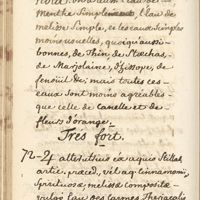 menthe Simplement, l'eau de
melisse Simple, et les eaux Simples
moins usuelles, quoiqu'aussi
bonnes, de Thin, de Stœchas,
de Marjolaine, d'hissope, de
fenouil &c; mais toutes ces
eaux sont moins agréables
que celle de Canelle et de
fleurs d'orange.
Très fort.
alteratrius ex aquis Stillat.
artic. præced, vel aq. cinnamomi,
Spirituosa, melissæ composita
vulgo l'eau des Carmes Theriacalis